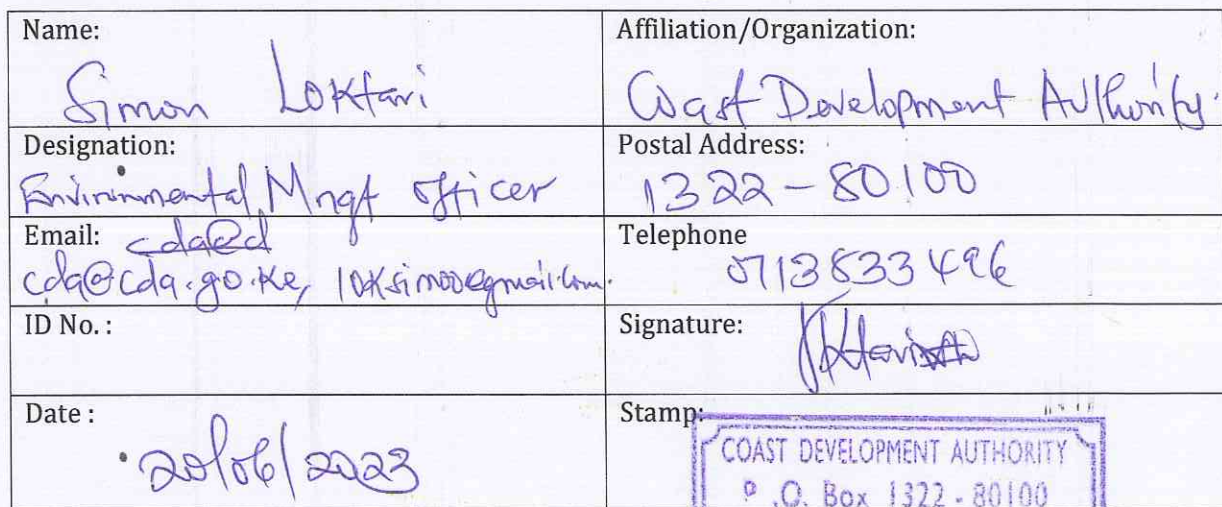 Name:
Simon Loktari
Affiliation/Organization:
Coast Development Authority.
Designation:
Environmental Mngt officer
Postal Address:
1322 - 80100
Email: cda@d
cda@cda.go.ke,
Telephone
0713833496
ID No. :
Signature:
Date :
20/06/2023
Stamp:
COAST DEVELOPMENT AUTHORITY
P.O. Box 1322 - 80100